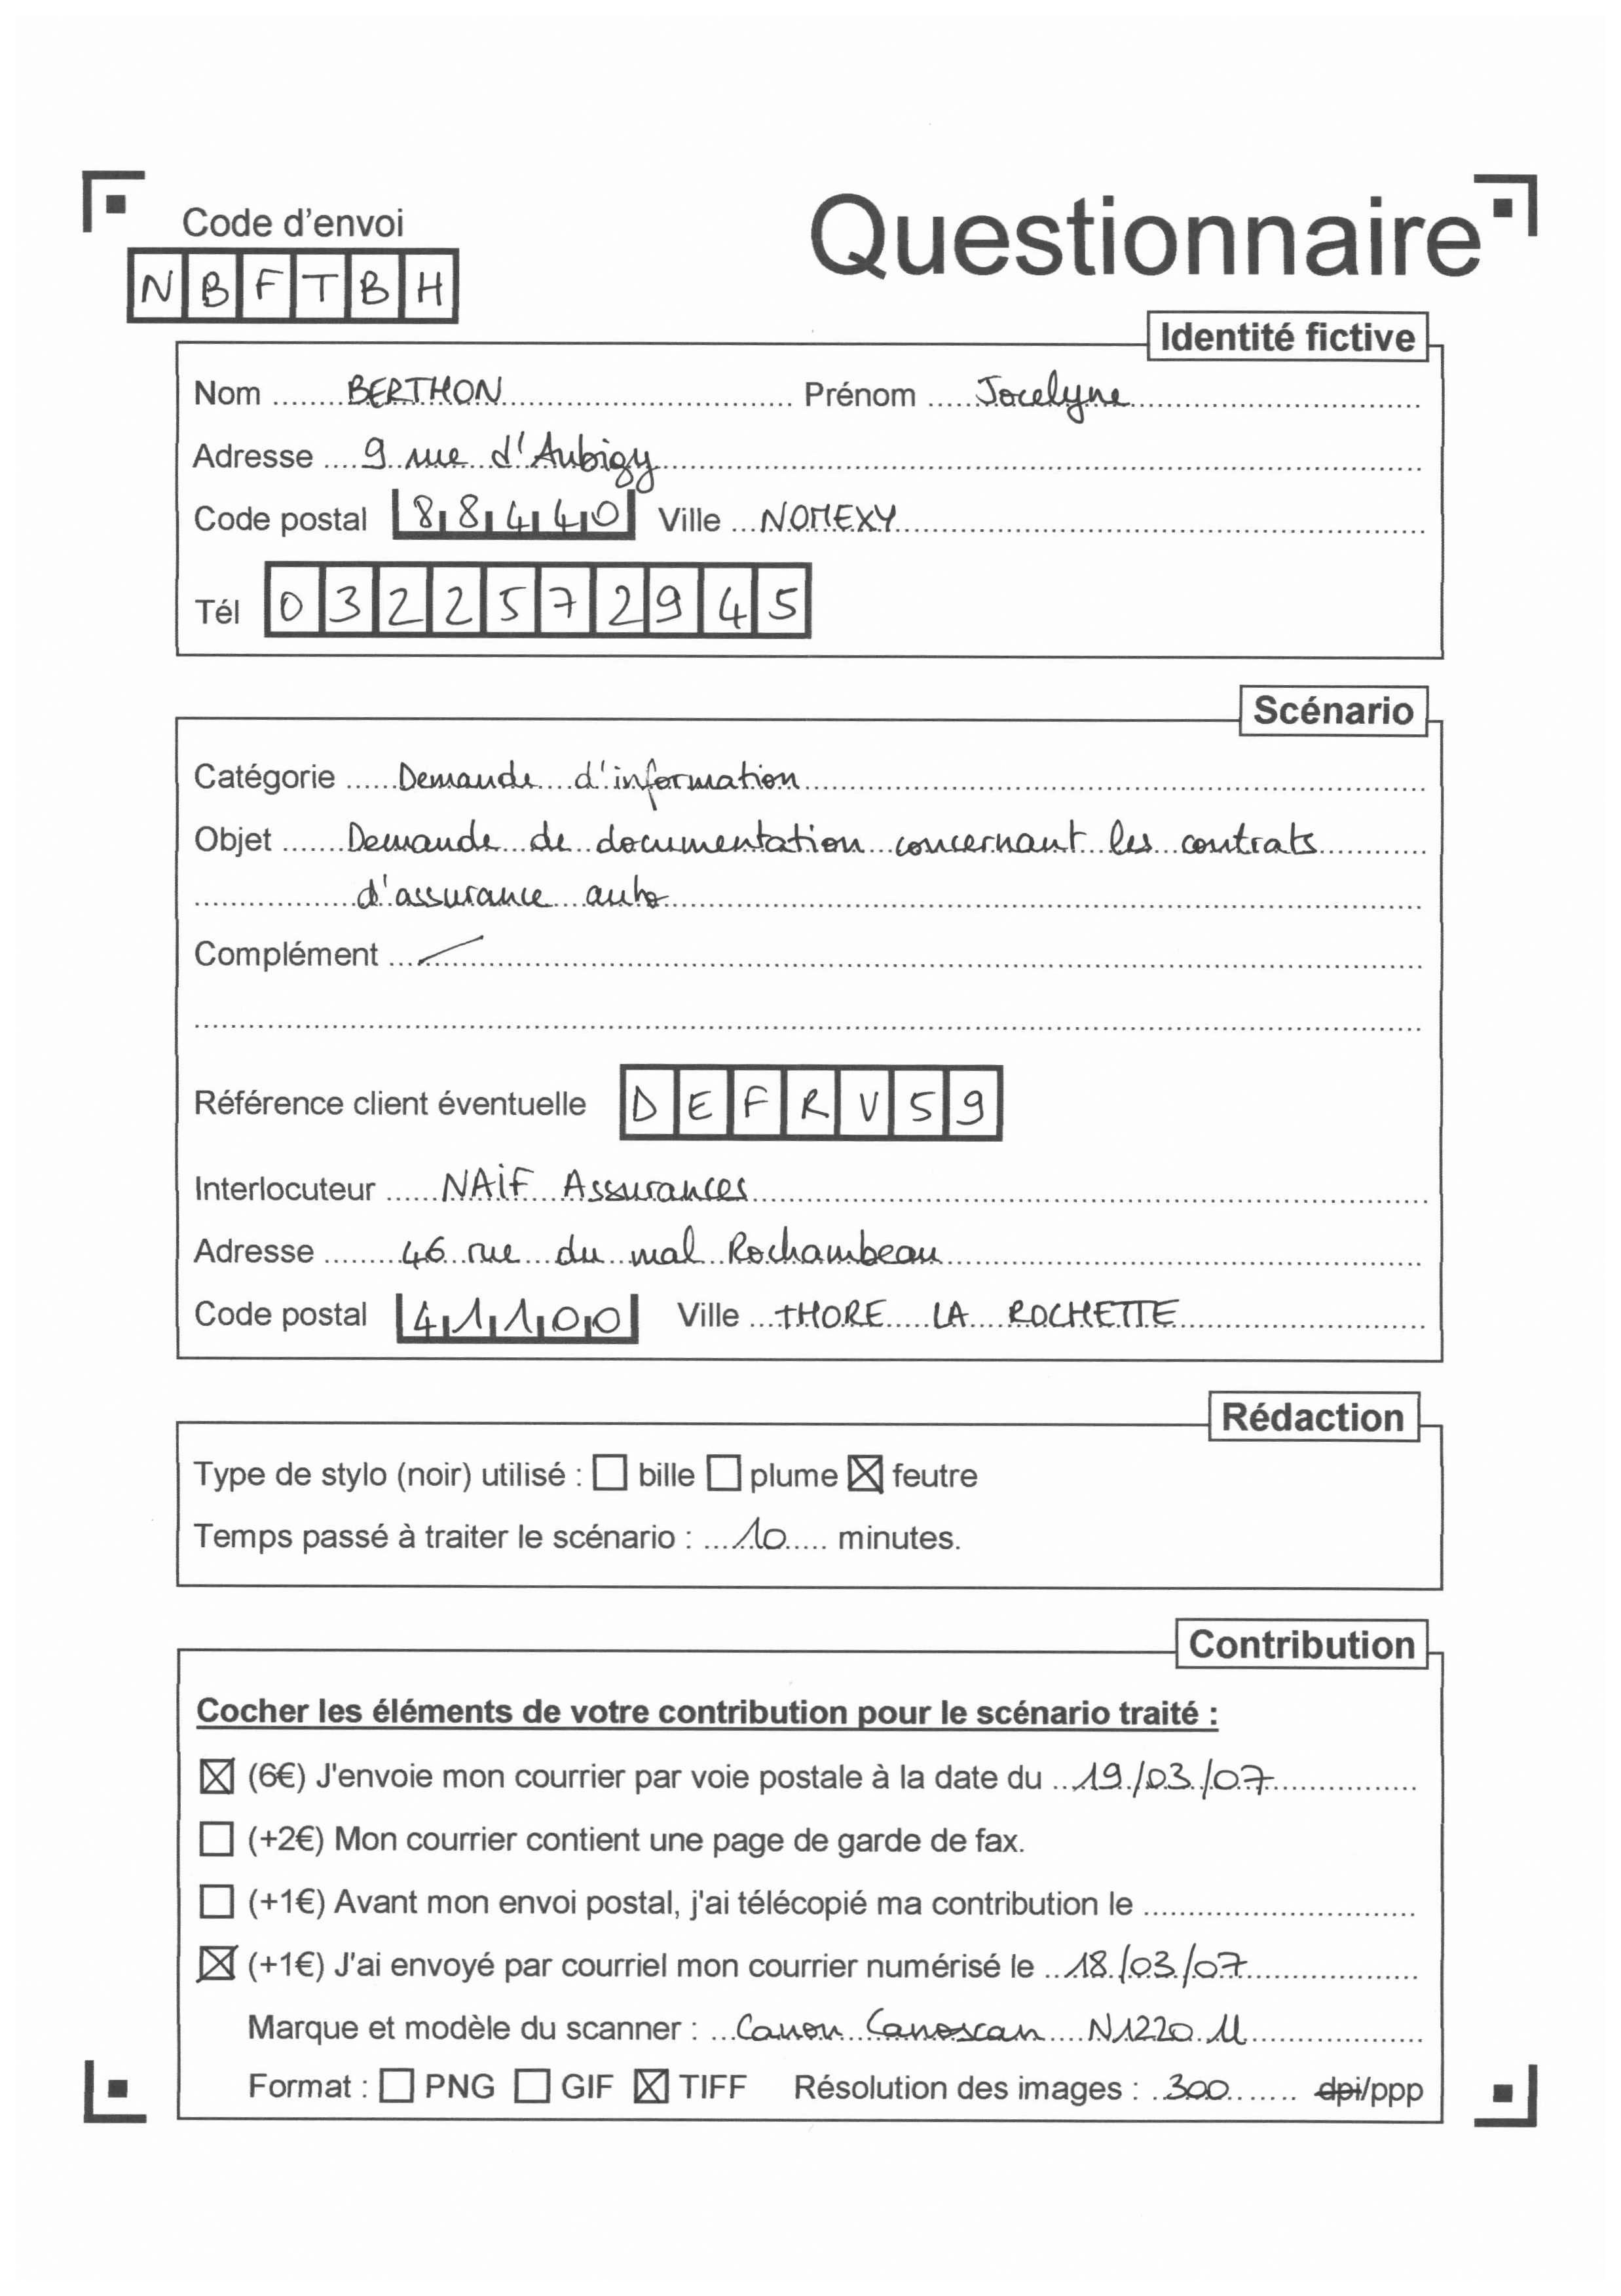 Code d'envoi
NBFTBH
Questionnaire
Identité fictive
Nom BERTHON Prénom Jocelyne
Adresse 9 rue d'Aubigy
Code postal 88440 Ville NOMEXY
Tél 0322572945
Scénario
Catégorie Demande d'information
Objet Demande de documentation concernant les contrats
d'assurance auto
Complément
Référence client éventuelle DEFRV59
Interlocuteur NAIF Assurances
Adresse 46 rue du mal Rochambeau
Code postal 41100 Ville THORE LA ROCHETTE
Rédaction
Type de stylo (noir) utilisé : bille plume feutre
Temps passé à traiter le scénario : 10 minutes.
Contribution
Cocher les éléments de votre contribution pour le scénario traité :
(6€) J'envoie mon courrier par voie postale à la date du 19/03/07
(+2€) Mon courrier contient une page de garde de fax.
(+1€) Avant mon envoi postal, j'ai télécopié ma contribution le
(+1€) J'ai envoyé par courriel mon courrier numérisé le 18/03/07
Marque et modèle du scanner : Canon Canoscan N1220 U
Format : PNG GIF TIFF Résolution des images : 300 dpi/ppp